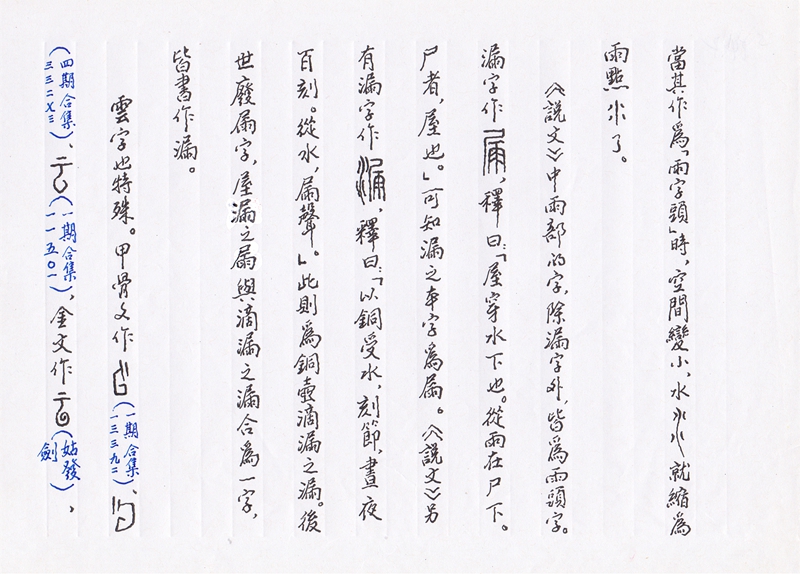 當其作為「雨字頭」時，空間變小，水就縮為
雨點小了。
《說文》中雨部的字，除漏字外，皆為雨頭字。
漏字作，釋曰：「屋穿水下也。從雨在尸下。
尸者，屋也。」可知漏之本字為屚。《說文》另
有漏字作，釋曰：「以銅受水，刻節，晝夜
百刻。從水，屚聲」。此則為銅壺滴漏之漏。後
世廢屚字，屋漏之屚與滴漏之漏合為一字，
皆書作漏。
雲字也特殊。甲骨文作（一期合集一三三九二）、
（四期合集三三二七三）、（一期合集一一五〇一），金文作（姑發劍），